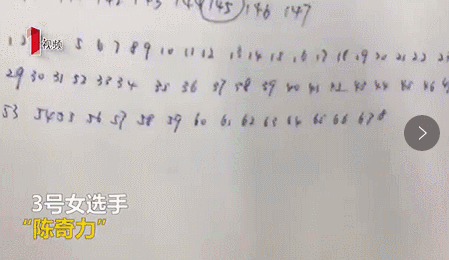 143 144 145 146 147
视频
1 2 5 6 7 8 9 10 11 12 13 14 15 16 17 18 19 20 21 22
29 30 31 32 33 34 35 36 37 38 39 40 41 42 43 44 45 46
53 54 55 56 57 58 59 60 61 62 63 64 65 66 67 8
3号女选手
“陈奇力”